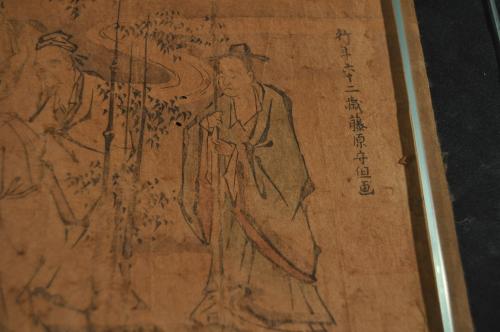 行年六十二歳藤原守但画